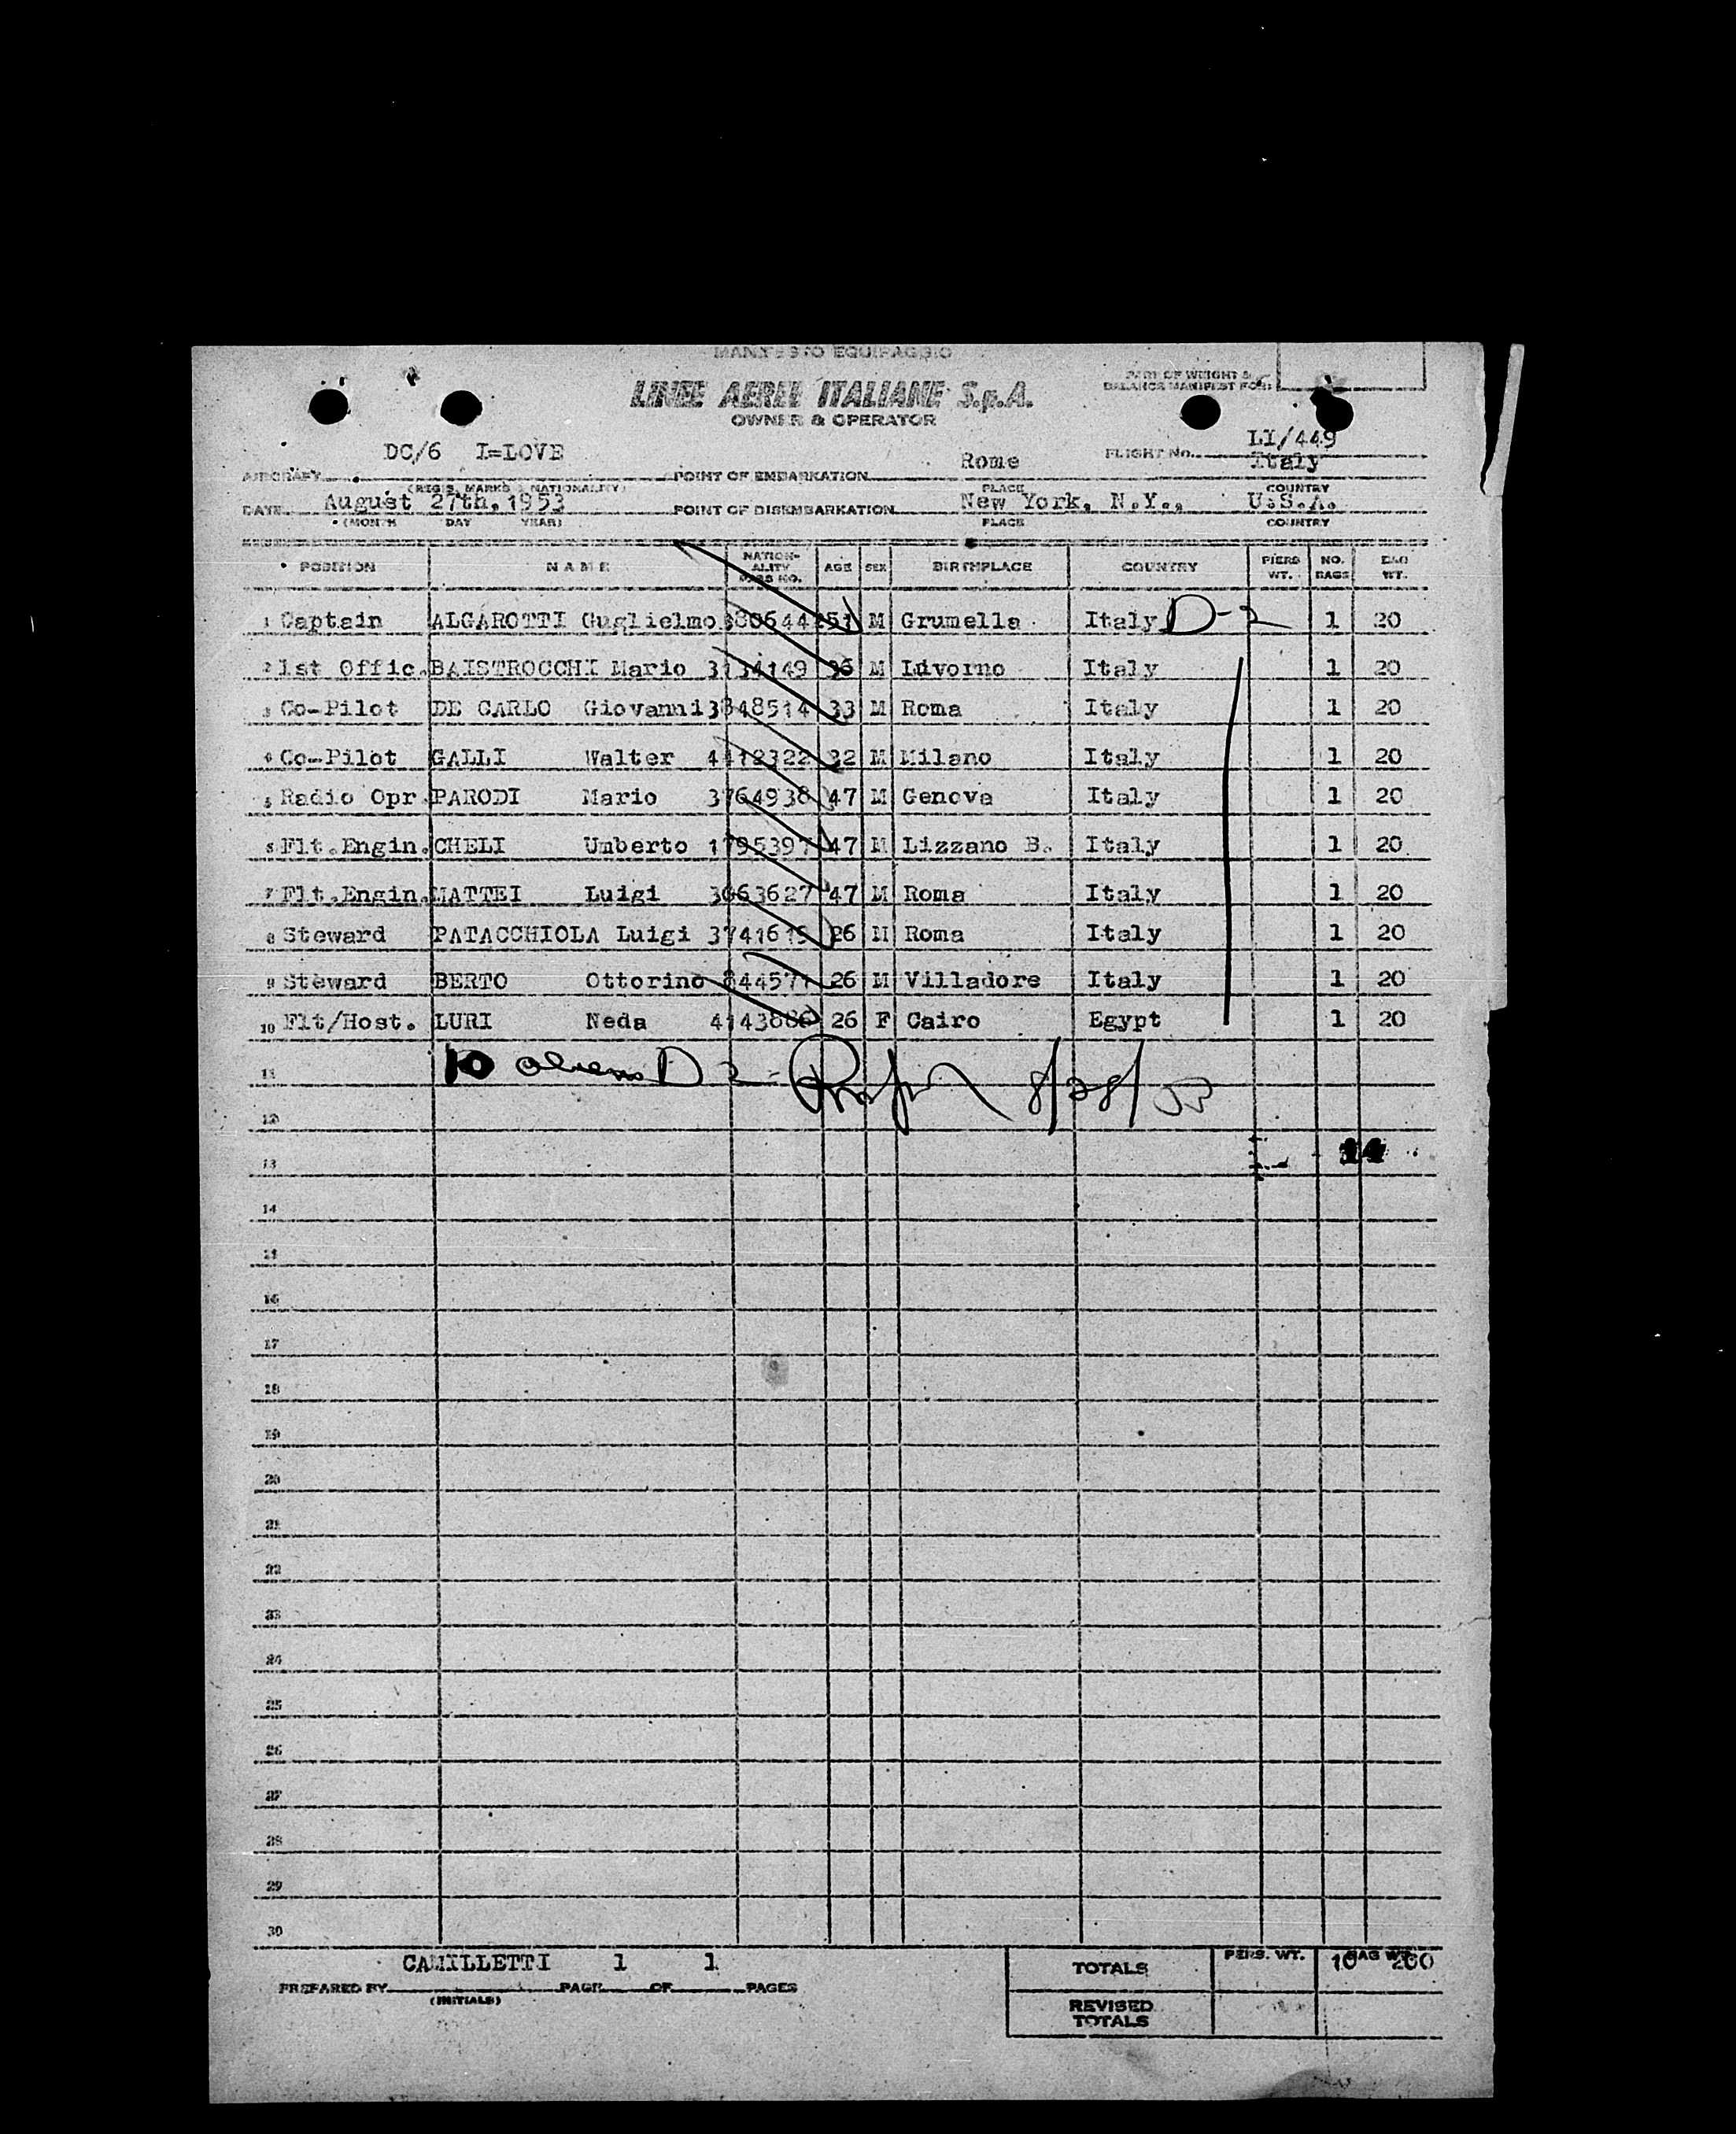 MANIFESTO EQUIPAGGIO
PART OF WEIGHT &
BALANCE MANIFEST FOR:
LINEE AEREE ITALIANE S.p.A.
OWNER & OPERATOR
DC/6 I=LOVE
LI/449
AIRCRAFT
(REGIS. MARKS & NATIONALITY)
POINT OF EMBARKATION
Rome
FLIGHT No.
Italy
PLACE
COUNTRY
DATE August 27th, 1953
(MONTH DAY YEAR)
POINT OF DISEMBARKATION
New York, N.Y., U.S.A.
PLACE
COUNTRY
POSITION NAME NATION-ALITY PASS NO. AGE SEX BIRTHPLACE COUNTRY PERS WT. NO. BAGS BAG WT.
1 Captain ALGAROTTI Guglielmo 51 M Grumella Italy D-2 1 20
2 1st Offic. BAISTROCCHI Mario 3134149 36 M Livorno Italy 1 20
3 Co-Pilot DE CARLO Giovanni 3848514 33 M Roma Italy 1 20
4 Co-Pilot GALLI Walter 4412322 32 M Milano Italy 1 20
5 Radio Opr. PARODI Mario 3764938 47 M Genova Italy 1 20
6 Flt.Engin. CHELI Umberto 1795397 47 M Lizzano B. Italy 1 20
7 Flt.Engin. MATTEI Luigi 3063627 47 M Roma Italy 1 20
8 Steward PATACCHIOLA Luigi 26 M Roma Italy 1 20
9 Steward BERTO Ottorino 26 M Villadore Italy 1 20
10 Flt/Host. LURI Neda 26 F Cairo Egypt 1 20
11 10 aliens D 2 - 8/28/53
12
13 14
14
15
16
17
18
19
20
21
22
23
24
25
26
27
28
29
30
CAMILLETTI 1 1
PREPARED BY PAGE OF PAGES
(INITIALS)
TOTALS PERS. WT. BAG WT. 10 200
REVISED
TOTALS